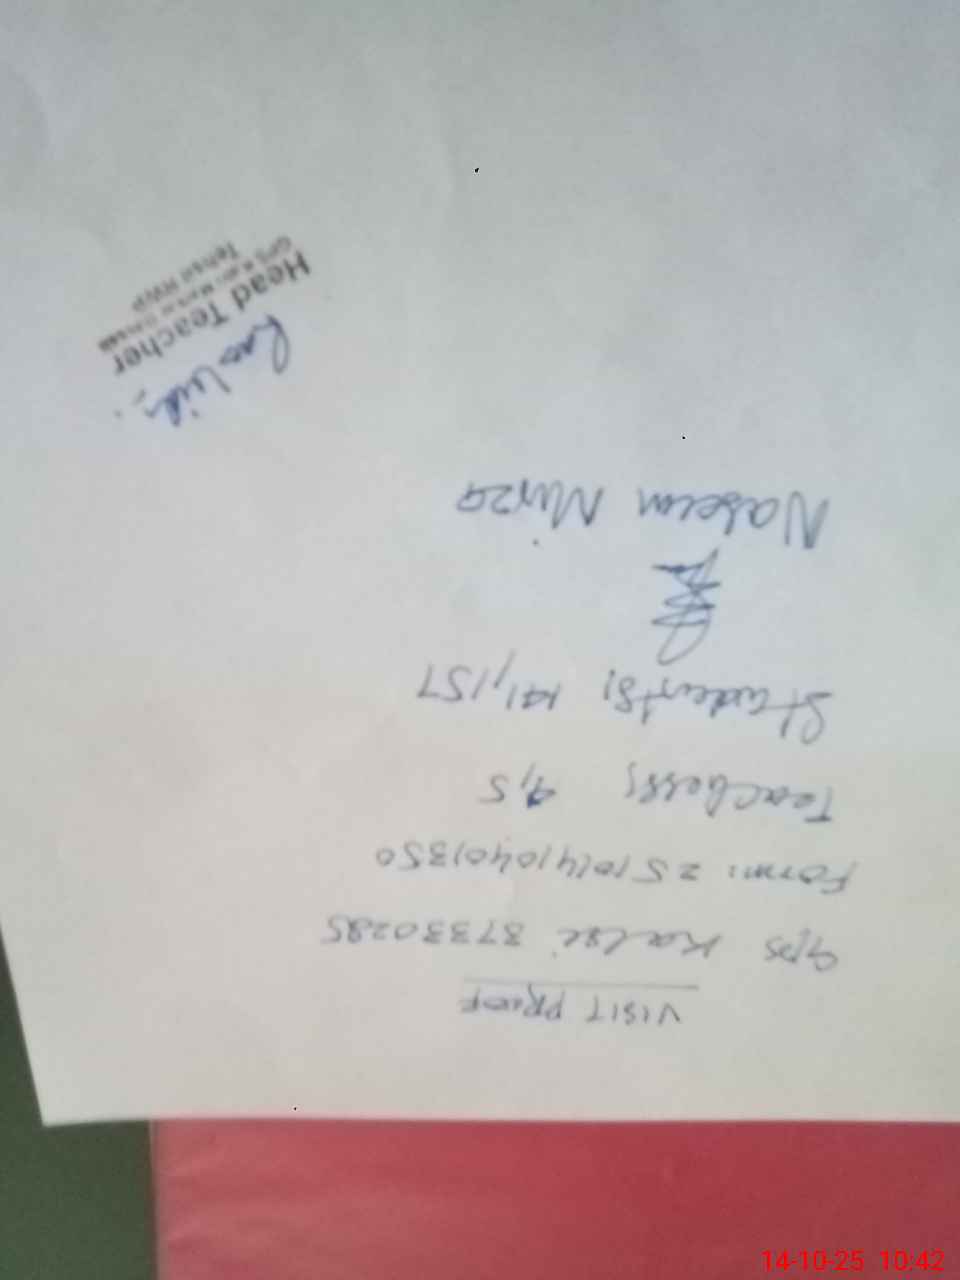 VISIT PROOF
Gps Kalsi 37330285
Form: 25101410401350
Teachers; 4,5
Students; 141,157
Naseem Mirza
Head Teacher
Tehsil RWP
14-10-25 10:42